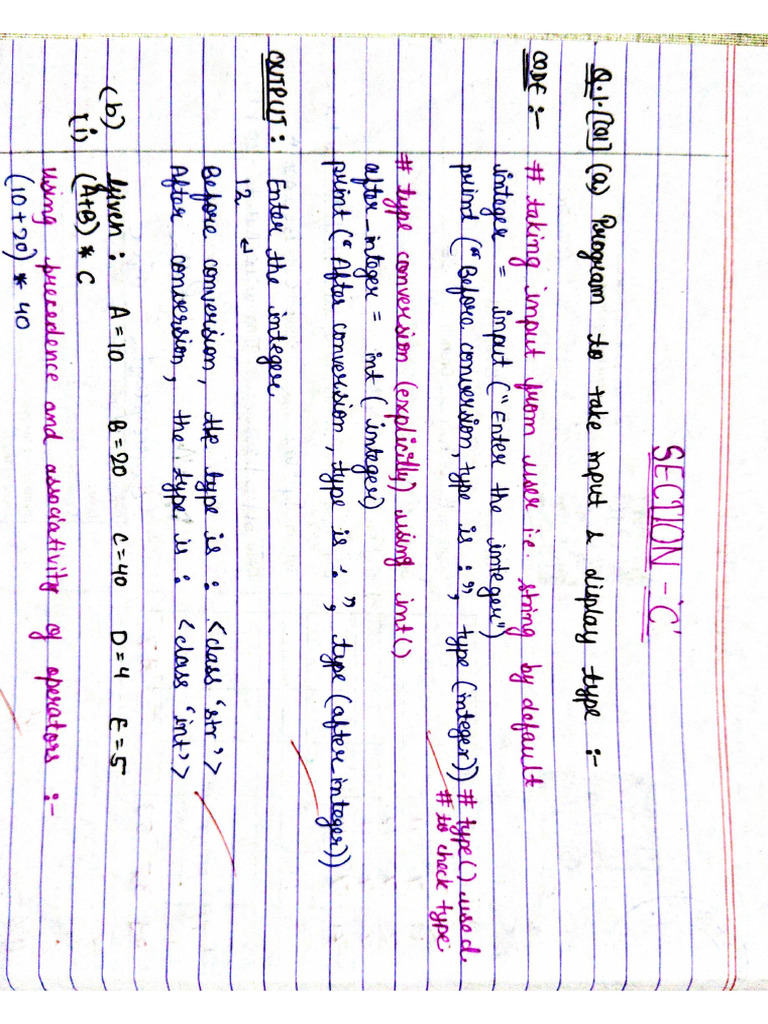 SECTION - 'C'
Q.1.[CO1] (a) Program to take input & display type :-
CODE :- # taking input from user i.e. string by default
integer = input ("Enter the integer")
print ("Before conversion, type is :", type (integer)) # type() used
# to check type
# type conversion (explicitly) using int()
after_integer = int (integer)
print ("After conversion, type is :", type (after_integer))
OUTPUT : Enter the integer
12 ↵
Before conversion, the type is : <class 'str'>
After conversion, the type is : <class 'int'>
(b) Given : A=10 B=20 C=40 D=4 E=5
(i) (A+B) * C
Using precedence and associativity of operators :-
(10+20) * 40